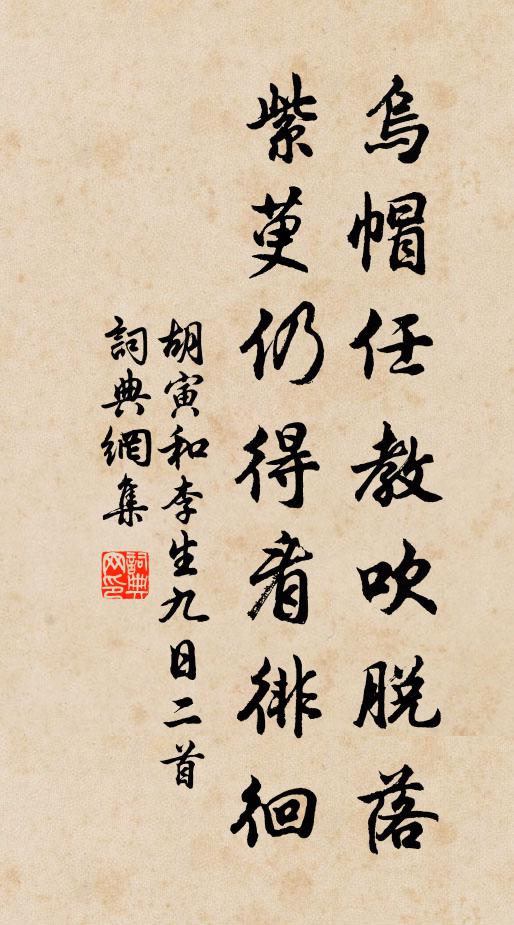 烏帽任教吹脫落
紫萸仍得看徘徊
胡寅和李生九日二首
詞典網集
詞典網印